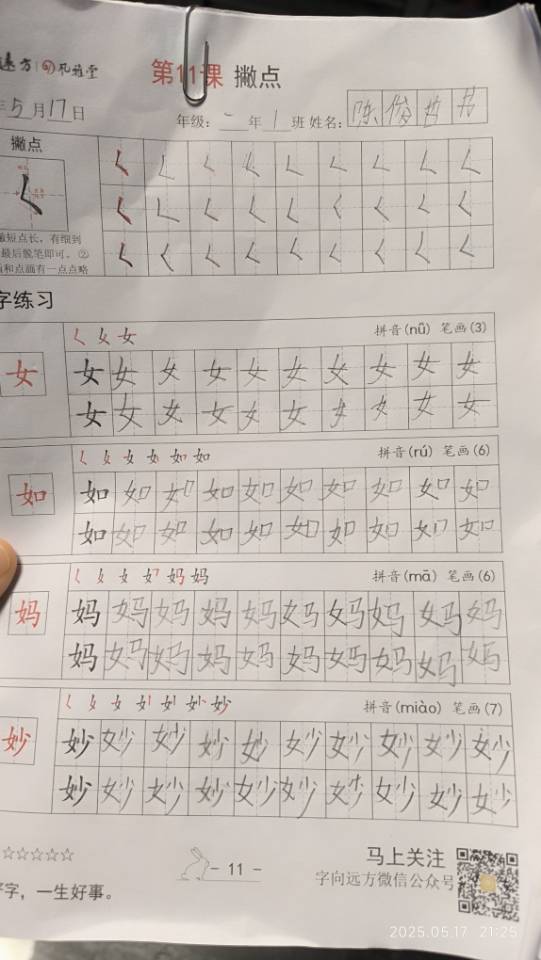 远方 孔雅堂
第11课 撇点
年5月17日
年级:二年1班 姓名:陈俊
撇点
撇短点长,有细到
最后脱笔即可。②
和点画有一点点略
字练习
㇛ 女 女
拼音(nǚ) 笔画(3)
女 女 女 女 女 女 女 女 女 女 女
女 女 女 女 女 女 女 女 女 女
拼音(rú) 笔画(6)
如 如 如 如 如 如 如 如 如 如 如
如 如 如 如 如 如 如 如 如 如
拼音(mā) 笔画(6)
妈 妈 妈 妈 妈 妈 妈 妈 妈 妈 妈
妈 妈 妈 妈 妈 妈 妈 妈 妈 妈
拼音(miào) 笔画(7)
妙 妙 妙 妙 妙 妙 妙 妙 妙 妙 妙
妙 妙 妙 妙 妙 妙 妙 妙 妙 妙
☆☆☆☆☆
- 11 -
马上关注
字向远方微信公众号
字,一生好事。
2025.05.17 21:25